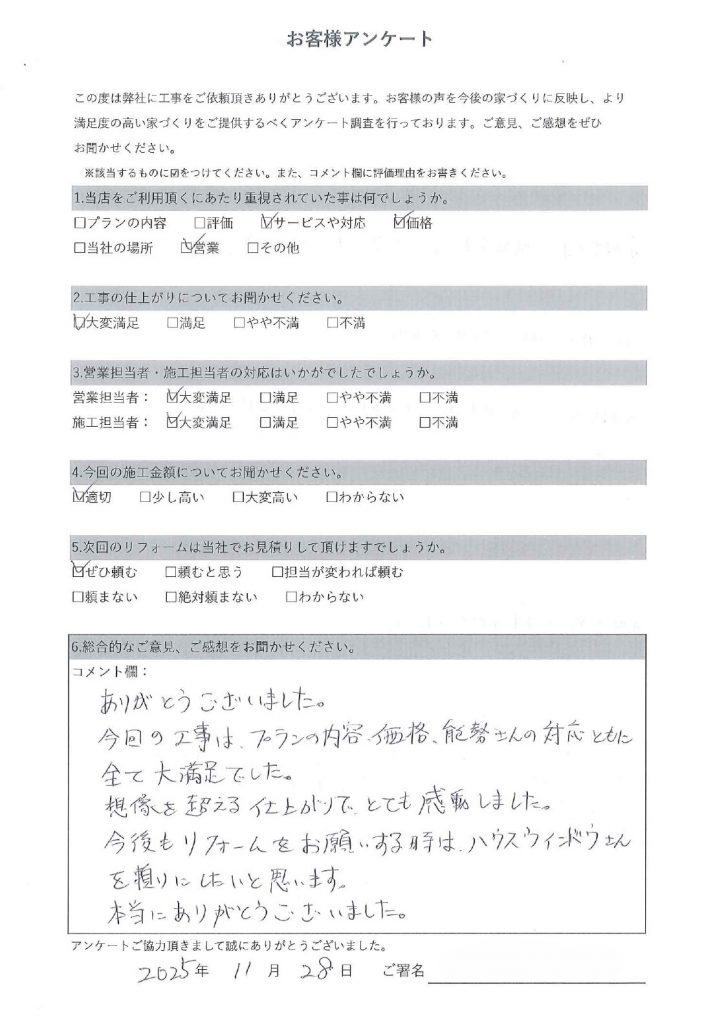 お客様アンケート
この度は弊社に工事をご依頼頂きありがとうございます。お客様の声を今後の家づくりに反映し、より
満足度の高い家づくりをご提供するべくアンケート調査を行っております。ご意見、ご感想をぜひ
お聞かせください。
※該当するものに☑をつけてください。また、コメント欄に評価理由をお書きください。
1.当店をご利用頂くにあたり重視されていた事は何でしょうか。
□プランの内容 □評価 ☑サービスや対応 ☑価格
□当社の場所 ☑営業 □その他
2.工事の仕上がりについてお聞かせください。
☑大変満足 □満足 □やや不満 □不満
3.営業担当者・施工担当者の対応はいかがでしたでしょうか。
営業担当者： ☑大変満足 □満足 □やや不満 □不満
施工担当者： ☑大変満足 □満足 □やや不満 □不満
4.今回の施工金額についてお聞かせください。
☑適切 □少し高い □大変高い □わからない
5.次回のリフォームは当社でお見積りして頂けますでしょうか。
☑ぜひ頼む □頼むと思う □担当が変われば頼む
□頼まない □絶対頼まない □わからない
6.総合的なご意見、ご感想をお聞かせください。
コメント欄：
ありがとうございました。
今回の工事は、プランの内容、価格、能勢さんの対応ともに
全て大満足でした。
想像を超える仕上がりで、とても感動しました。
今後もリフォームをお願いする時は、ハウスウィンドウさん
を頼りにしたいと思います。
本当にありがとうございました。
アンケートご協力頂きまして誠にありがとうございました。
2025年 11月 28日 ご署名